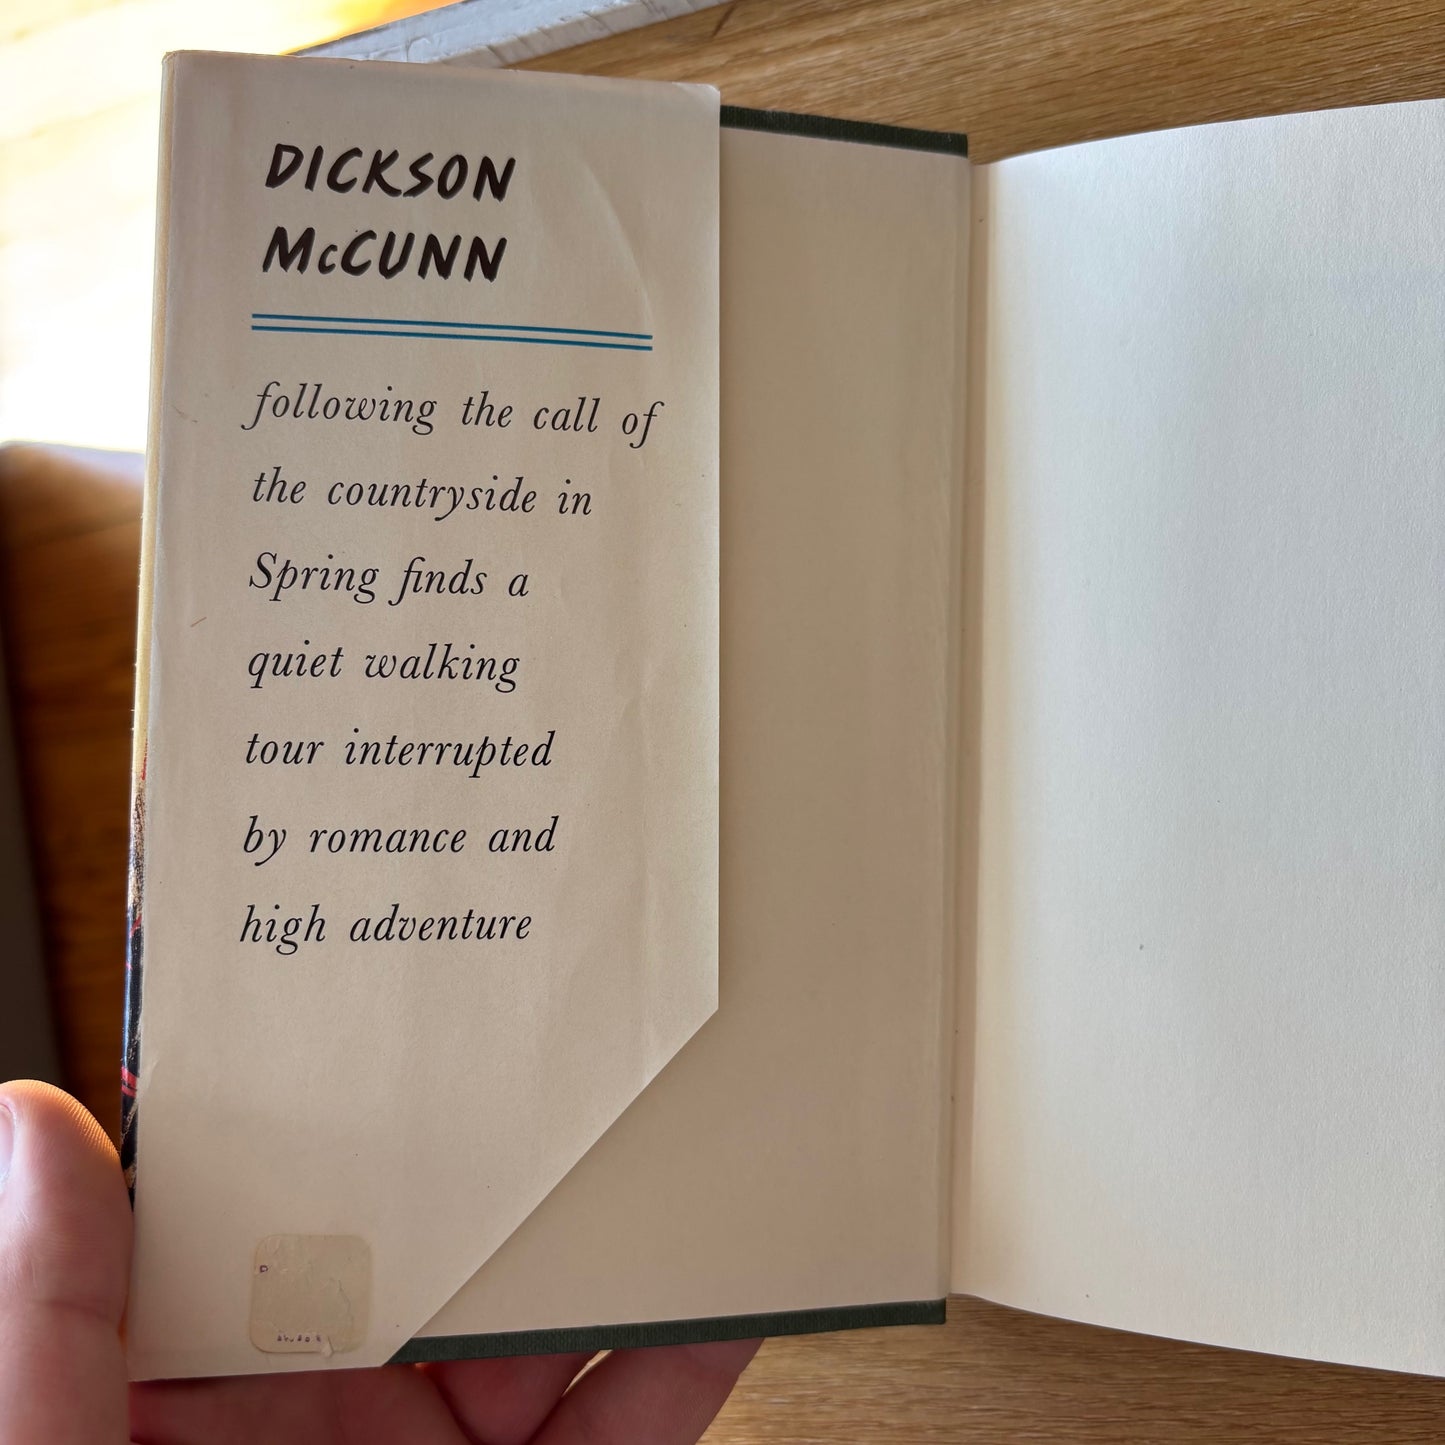 DICKSON
McCUNN
following the call of
the countryside in
Spring finds a
quiet walking
tour interrupted
by romance and
high adventure